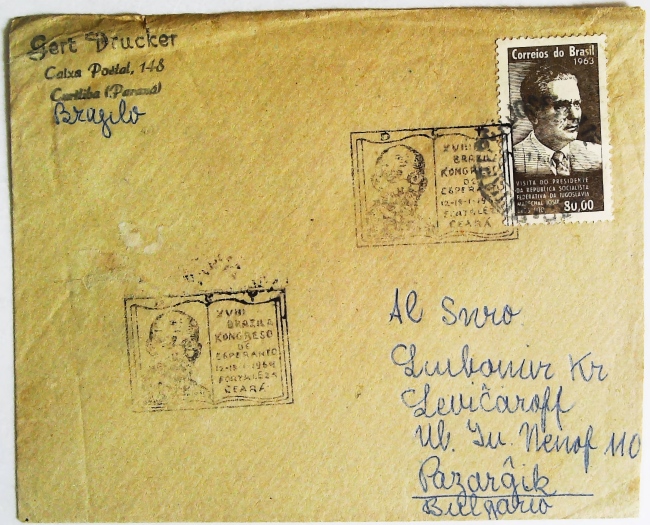 Gert Drucker
Caixa Postal, 148
Curitiba (Paraná)
Brazilo
Correios do Brasil
1963
VISITA DO PRESIDENTE
DA REPÚBLICA SOCIALISTA
FEDERATIVA DA IUGOSLÁVIA
MARECHAL JOSIP
80,00
XVIII
BRAZILA
KONGRESO
DE
ESPERANTO
12-18-1-19
FORTALEZA
CEARÁ
XVIII
BRAZILA
KONGRESO
DE
ESPERANTO
12-18-1-1964
FORTALEZA
CEARÁ
Al Sinro
Ljubomir Kr
Levičaroff
Ul. Iv. Nenof 110
Pazarĝik
Bulgario